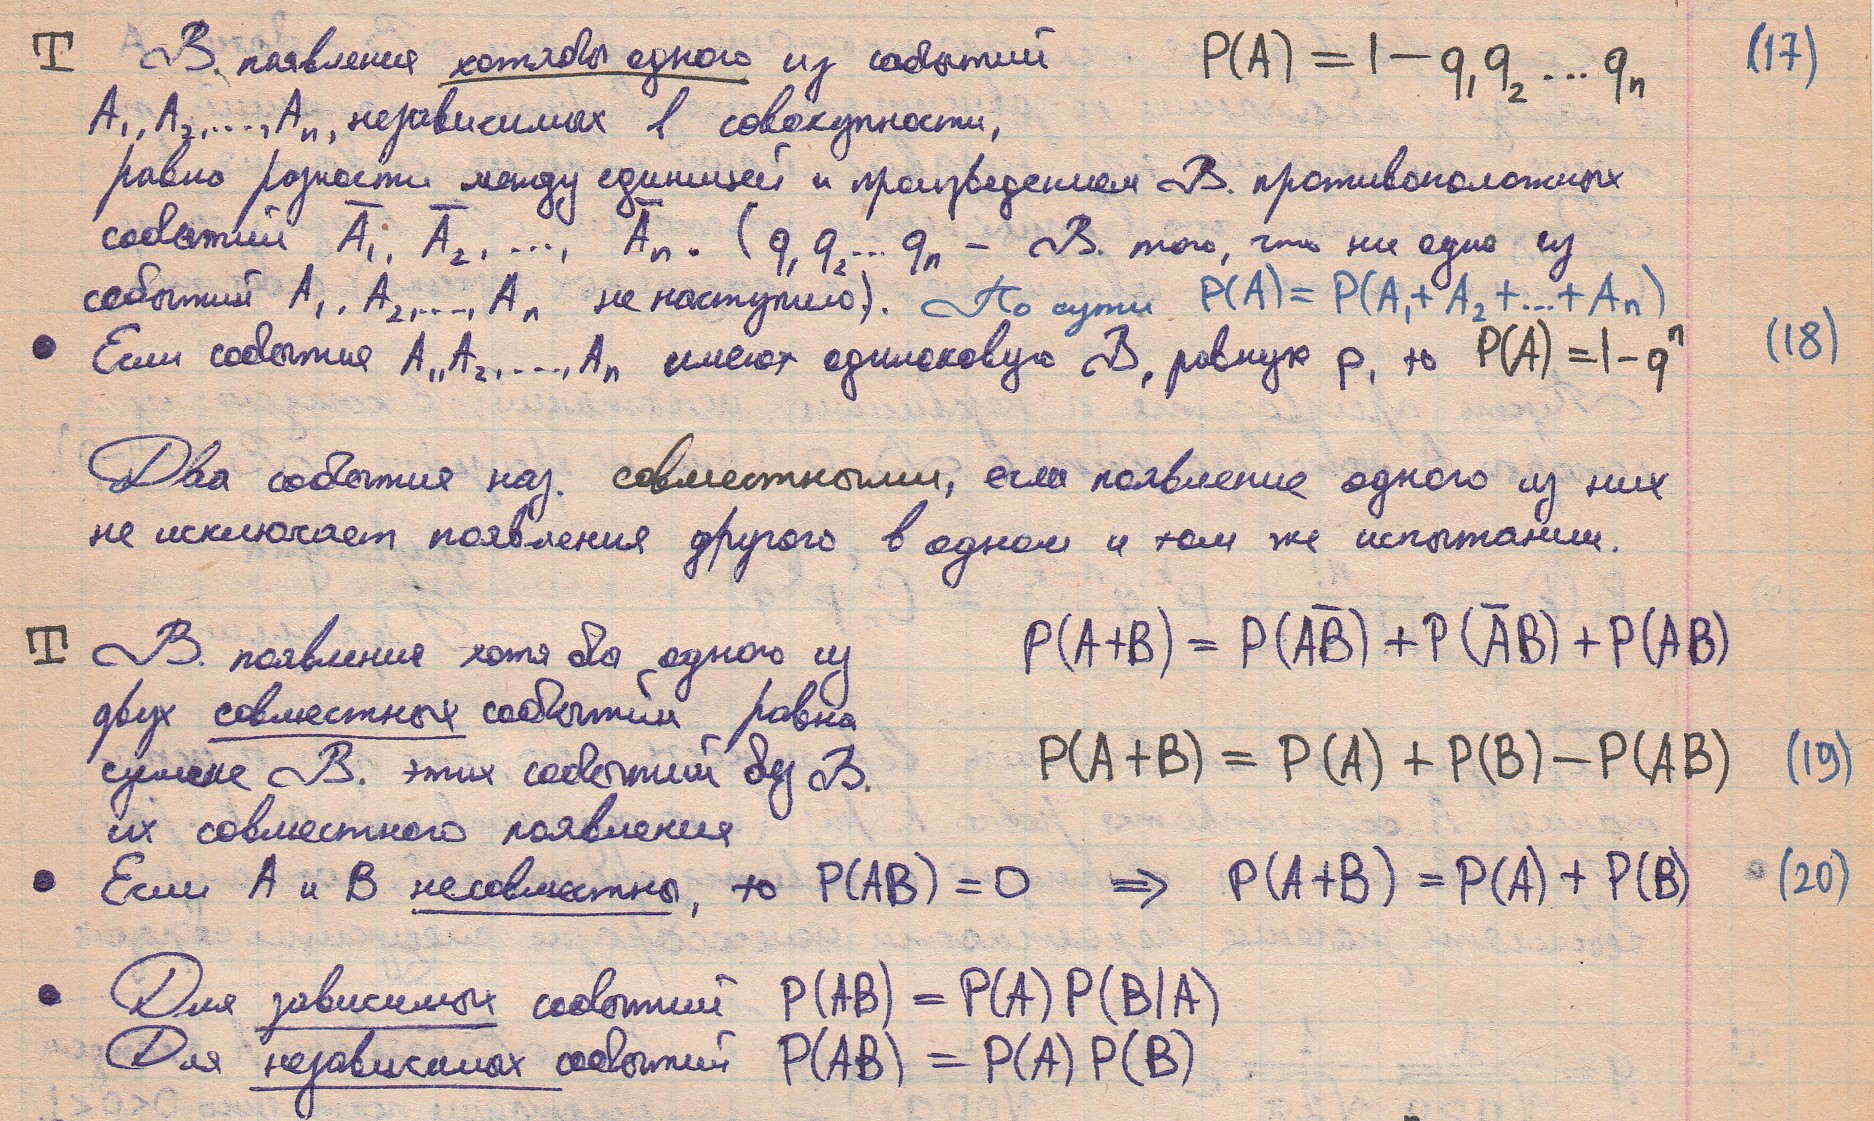 T В. появления хотябы одного из событий P(A) = 1 − q₁q₂ ... qₙ (17)
A₁, A₂, ..., Aₙ, независимых в совокупности,
равно разности между единицей и произведением В. противоположных
событий A̅₁, A̅₂, ..., A̅ₙ. (q₁q₂... qₙ − В. того, что ни одно из
событий A₁, A₂, ..., Aₙ не наступило). По сути P(A) = P(A₁ + A₂ + ... + Aₙ)
• Если события A₁, A₂, ..., Aₙ имеют одинаковую В, равную p, то P(A) = 1 − qⁿ (18)
Два события наз. совместными, если появление одного из них
не исключает появления другого в одном и том же испытании.
T В. появления хотя бы одного из P(A+B) = P(AB̅) + P(A̅B) + P(AB)
двух совместных событий равна
сумме В. этих событий без В. P(A+B) = P(A) + P(B) − P(AB) (19)
их совместного появления
• Если A и B несовместны, то P(AB) = 0 ⇒ P(A+B) = P(A) + P(B) (20)
• Для зависимых событий P(AB) = P(A) P(B|A)
Для независимых событий P(AB) = P(A) P(B)